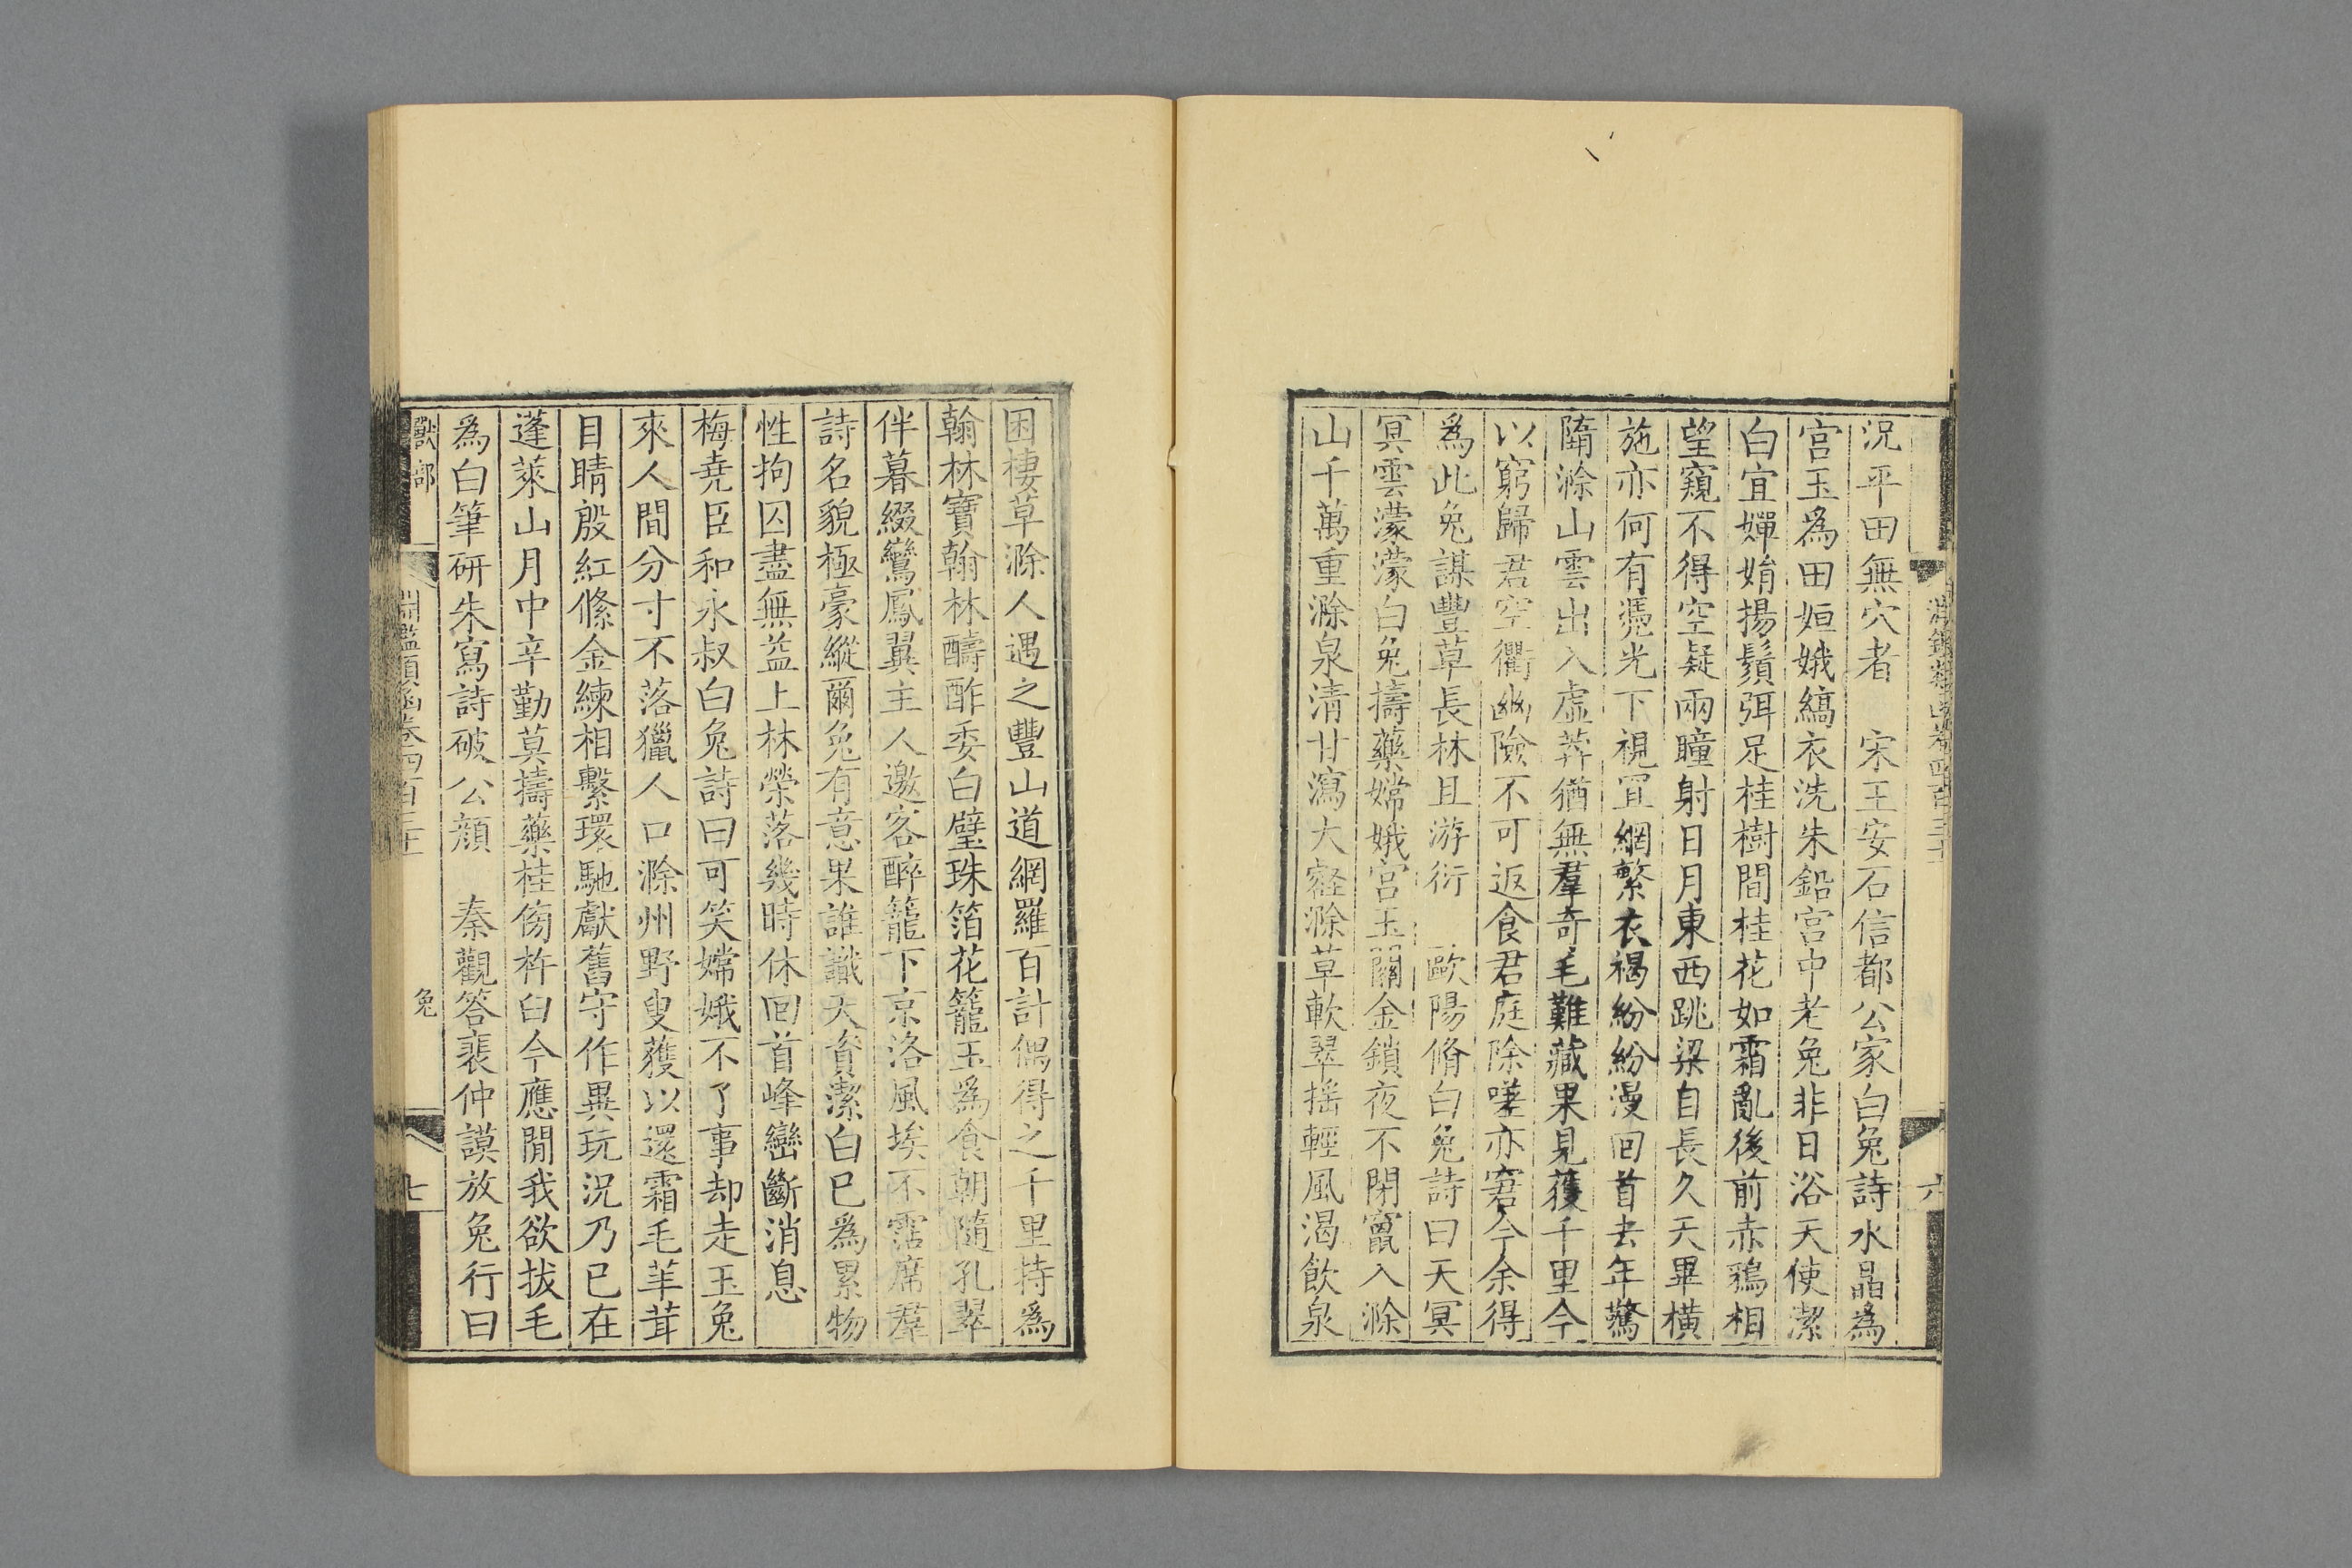 況平田無穴者　宋王安石信都公家白兔詩水晶為
宫玉為田姮娥縞衣洗朱鉛宫中老兔非日浴天使潔
白宜嬋娟揚鬚弭足桂樹間桂花如霜亂後前赤鴉相
望窺不得空疑兩瞳射日月東西跳梁自長久天畢橫
施亦何有憑光下視罝網繁衣褐紛紛漫回首去年驚
隋滁山雲出入虛莽猶無羣奇毛難藏果見獲千里今
以窮歸君空衢幽險不可返食君庭除嗟亦窘今余得
為此兔謀豐草長林且游衍　歐陽脩白兔詩曰天冥
冥雲濛濛白兔擣藥嫦娥宫玉關金鎖夜不閉竄入滁
山千萬重滁泉清甘瀉大壑滁草軟翠搖輕風渴飲泉
困棲草滁人遇之豐山道網羅百計偶得之千里持為
翰林寶翰林酬酢委白璧珠箔花籠玉為食朝隨孔翠
伴暮綴鸞鳳翼主人邀客醉籠下京洛風埃不霑席羣
詩名貌極豪縱爾兔有意果誰識天資潔白已為累物
性拘囚盡無益上林榮落幾時休回首峰巒斷消息
梅堯臣和永叔白兔詩曰可笑嫦娥不了事却走玉兔
來人間分寸不落獵人口滁州野叟獲以還霜毛茸茸
目睛殷紅絛金練相繫環馳獻舊守作異玩況乃已在
蓬萊山月中辛勤莫擣藥桂傍杵臼今應閒我欲拔毛
為白筆研朱寫詩破公顏　秦觀答裴仲謨放兔行曰
獸部
淵鑑類函卷四百三十一
兔
七